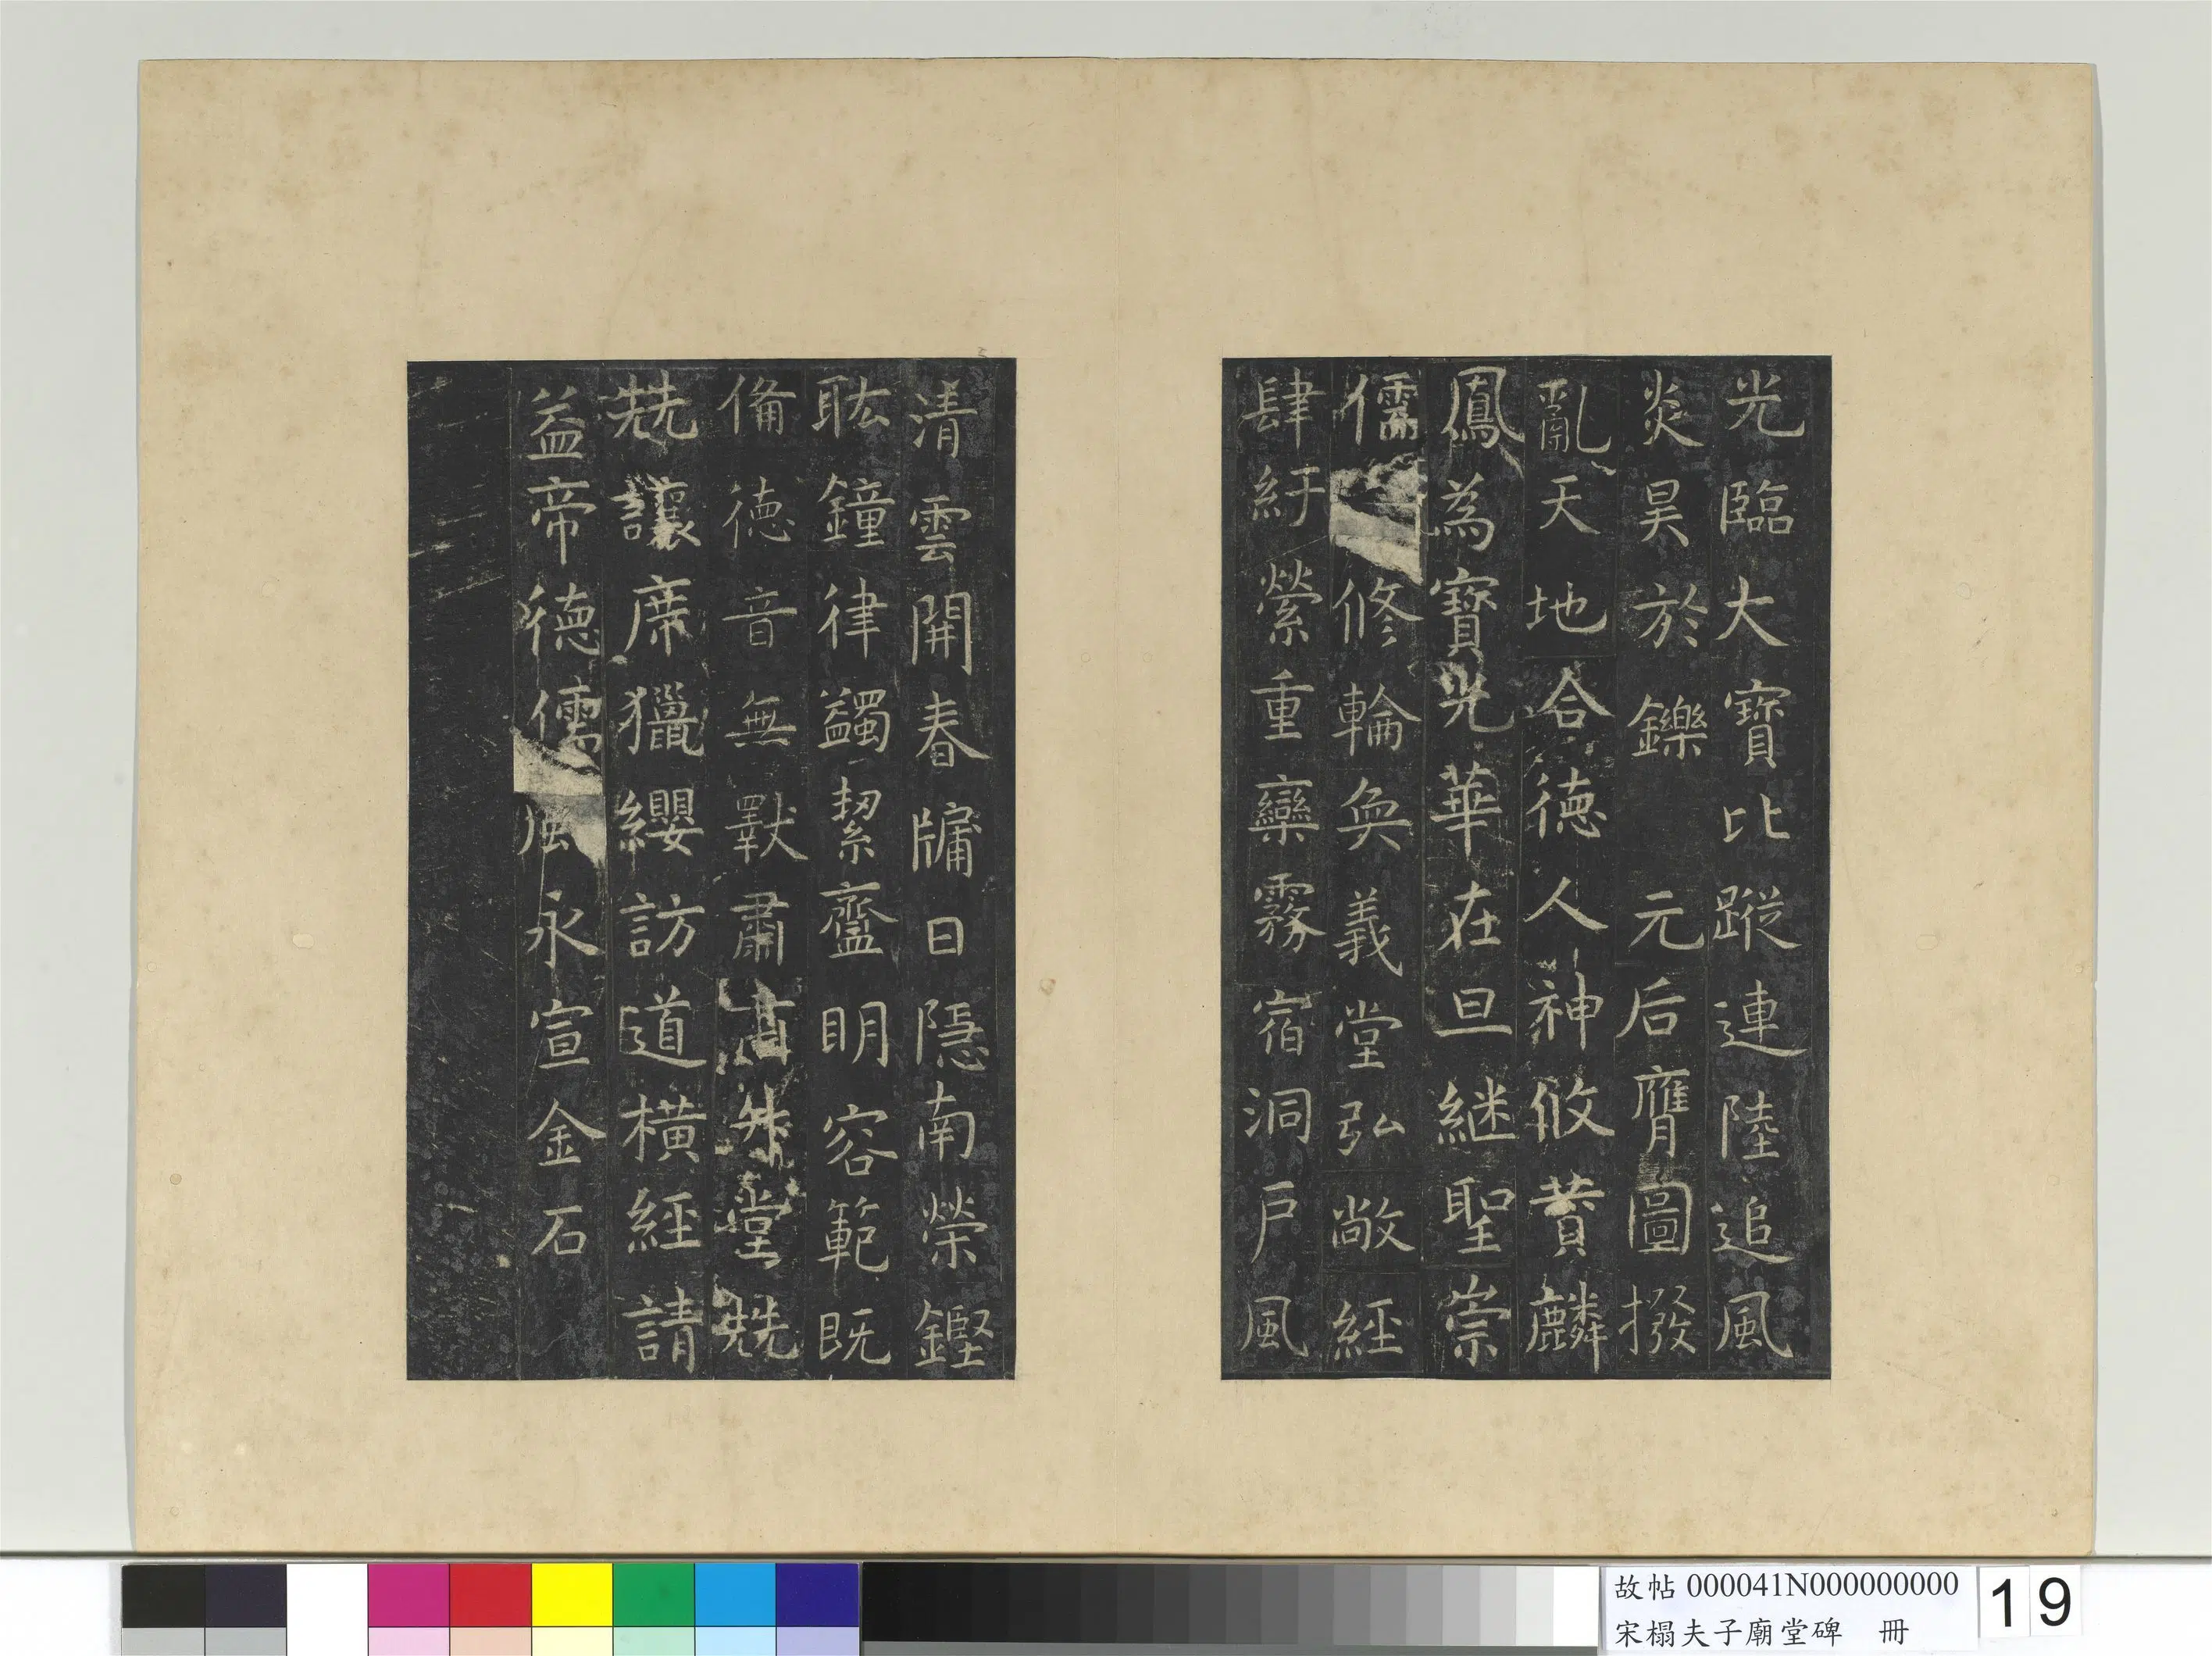 光臨大寶比蹤連陸追風
炎昊於鑠元后膺圖撥
亂天地合德人神攸贊麟
鳳為寶光華在旦継聖崇
儒修輪奐義堂弘敞經
肆紆縈重欒霧宿洞戶風
清雲開春牖日隱南榮鏗
耾鐘律蠲絜齍明容範既
備德音無斁肅升堂兟
兟讓席獵纓訪道橫經請
益帝德儒風永宣金石
故帖 000041N000000000
宋榻夫子廟堂碑 冊
19